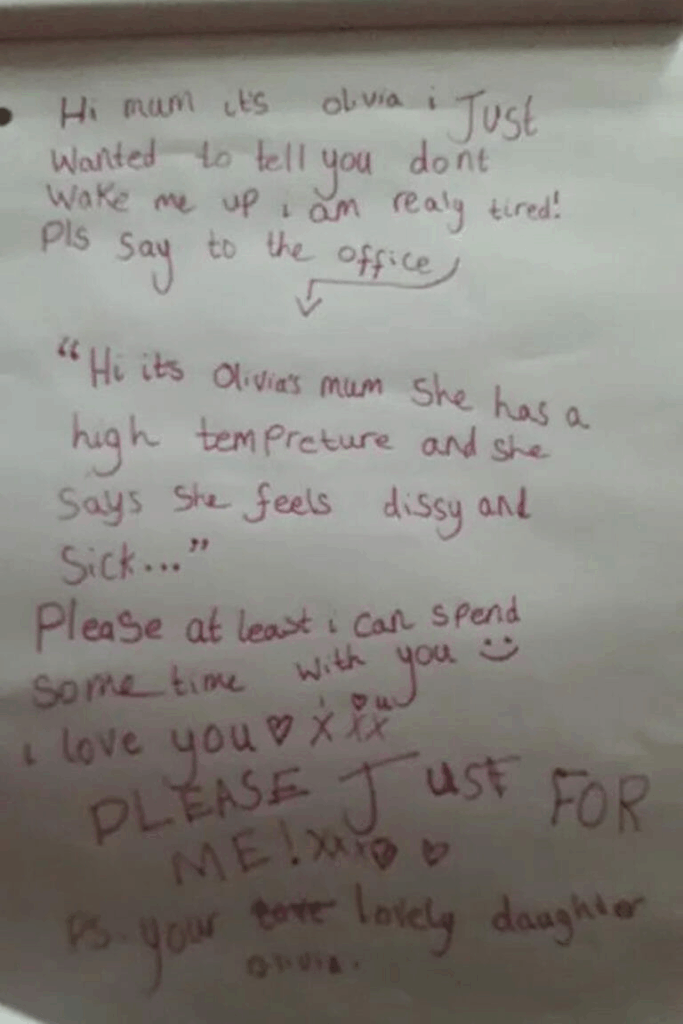 Hi mum it's olivia i Just
Wanted to tell you dont
Wake me up i am realy tired!
Pls say to the office
"Hi its Olivia's mum She has a
high tempreture and she
Says She feels dissy and
Sick..."
Please at least i can spend
some time with you
i love you ♡ xxx
PLEASE JUST FOR
ME! xxx ♡ ♡
Ps. your lovely daughter
Olivia.